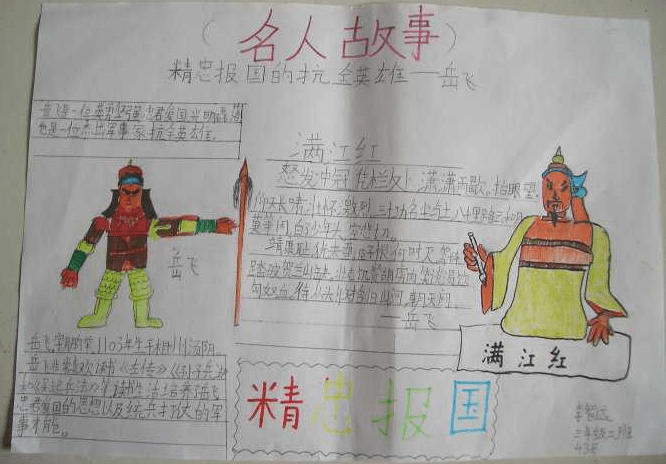 （名人故事）
精忠报国的抗金英雄——岳飞
岳飞是一位英勇坚强忠君爱国光明
也是一位杰出军事家抗金英雄。
满江红
怒发冲冠凭栏处、潇潇雨歇、抬眼望、
仰天长啸壮怀激烈三十功名尘与土八千里路云和月
莫等闲白了少年头空悲切。
靖康耻犹未雪臣子恨何时灭驾长车
踏破贺兰山缺壮志饥餐胡虏肉笑谈渴饮
匈奴血待从头收拾旧山河朝天阙
——岳飞
岳飞
岳飞1103年生于相州汤阴。
岳飞非常喜欢读《左传》《孙子兵法》
《吴起兵法》等读书生活培养了岳飞
忠君爱国的思想以及统兵打仗的军
事才能。
满江红
精忠报国
李智远
三年级二班
43号